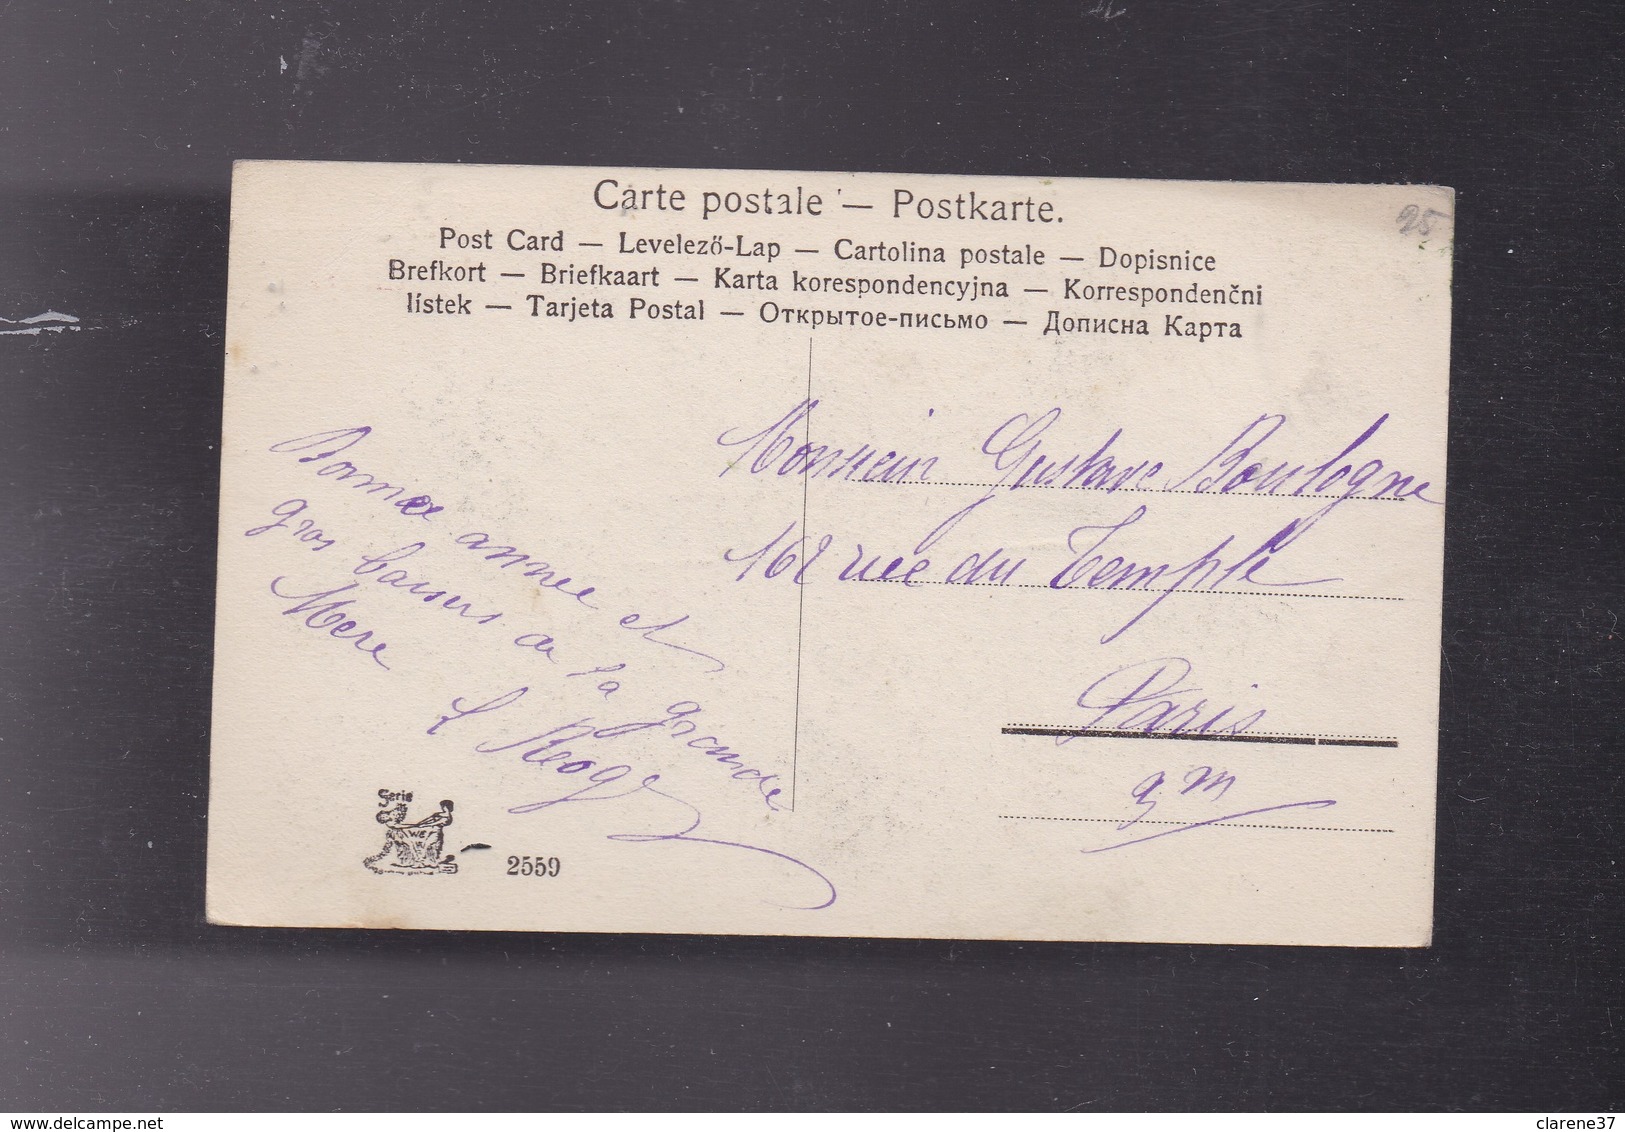 Carte postale — Postkarte.
Post Card — Levelező-Lap — Cartolina postale — Dopisnice
Brefkort — Briefkaart — Karta korespondencyjna — Korrespondenčni
lístek — Tarjeta Postal — Открытое-письмо — Дописна Карта
25
Bonne année et
gros baisers de la grande
Mere
Monsieur Gustave Boulogne
162 rue du Temple
Paris
Serie
WE
2559
clarene37